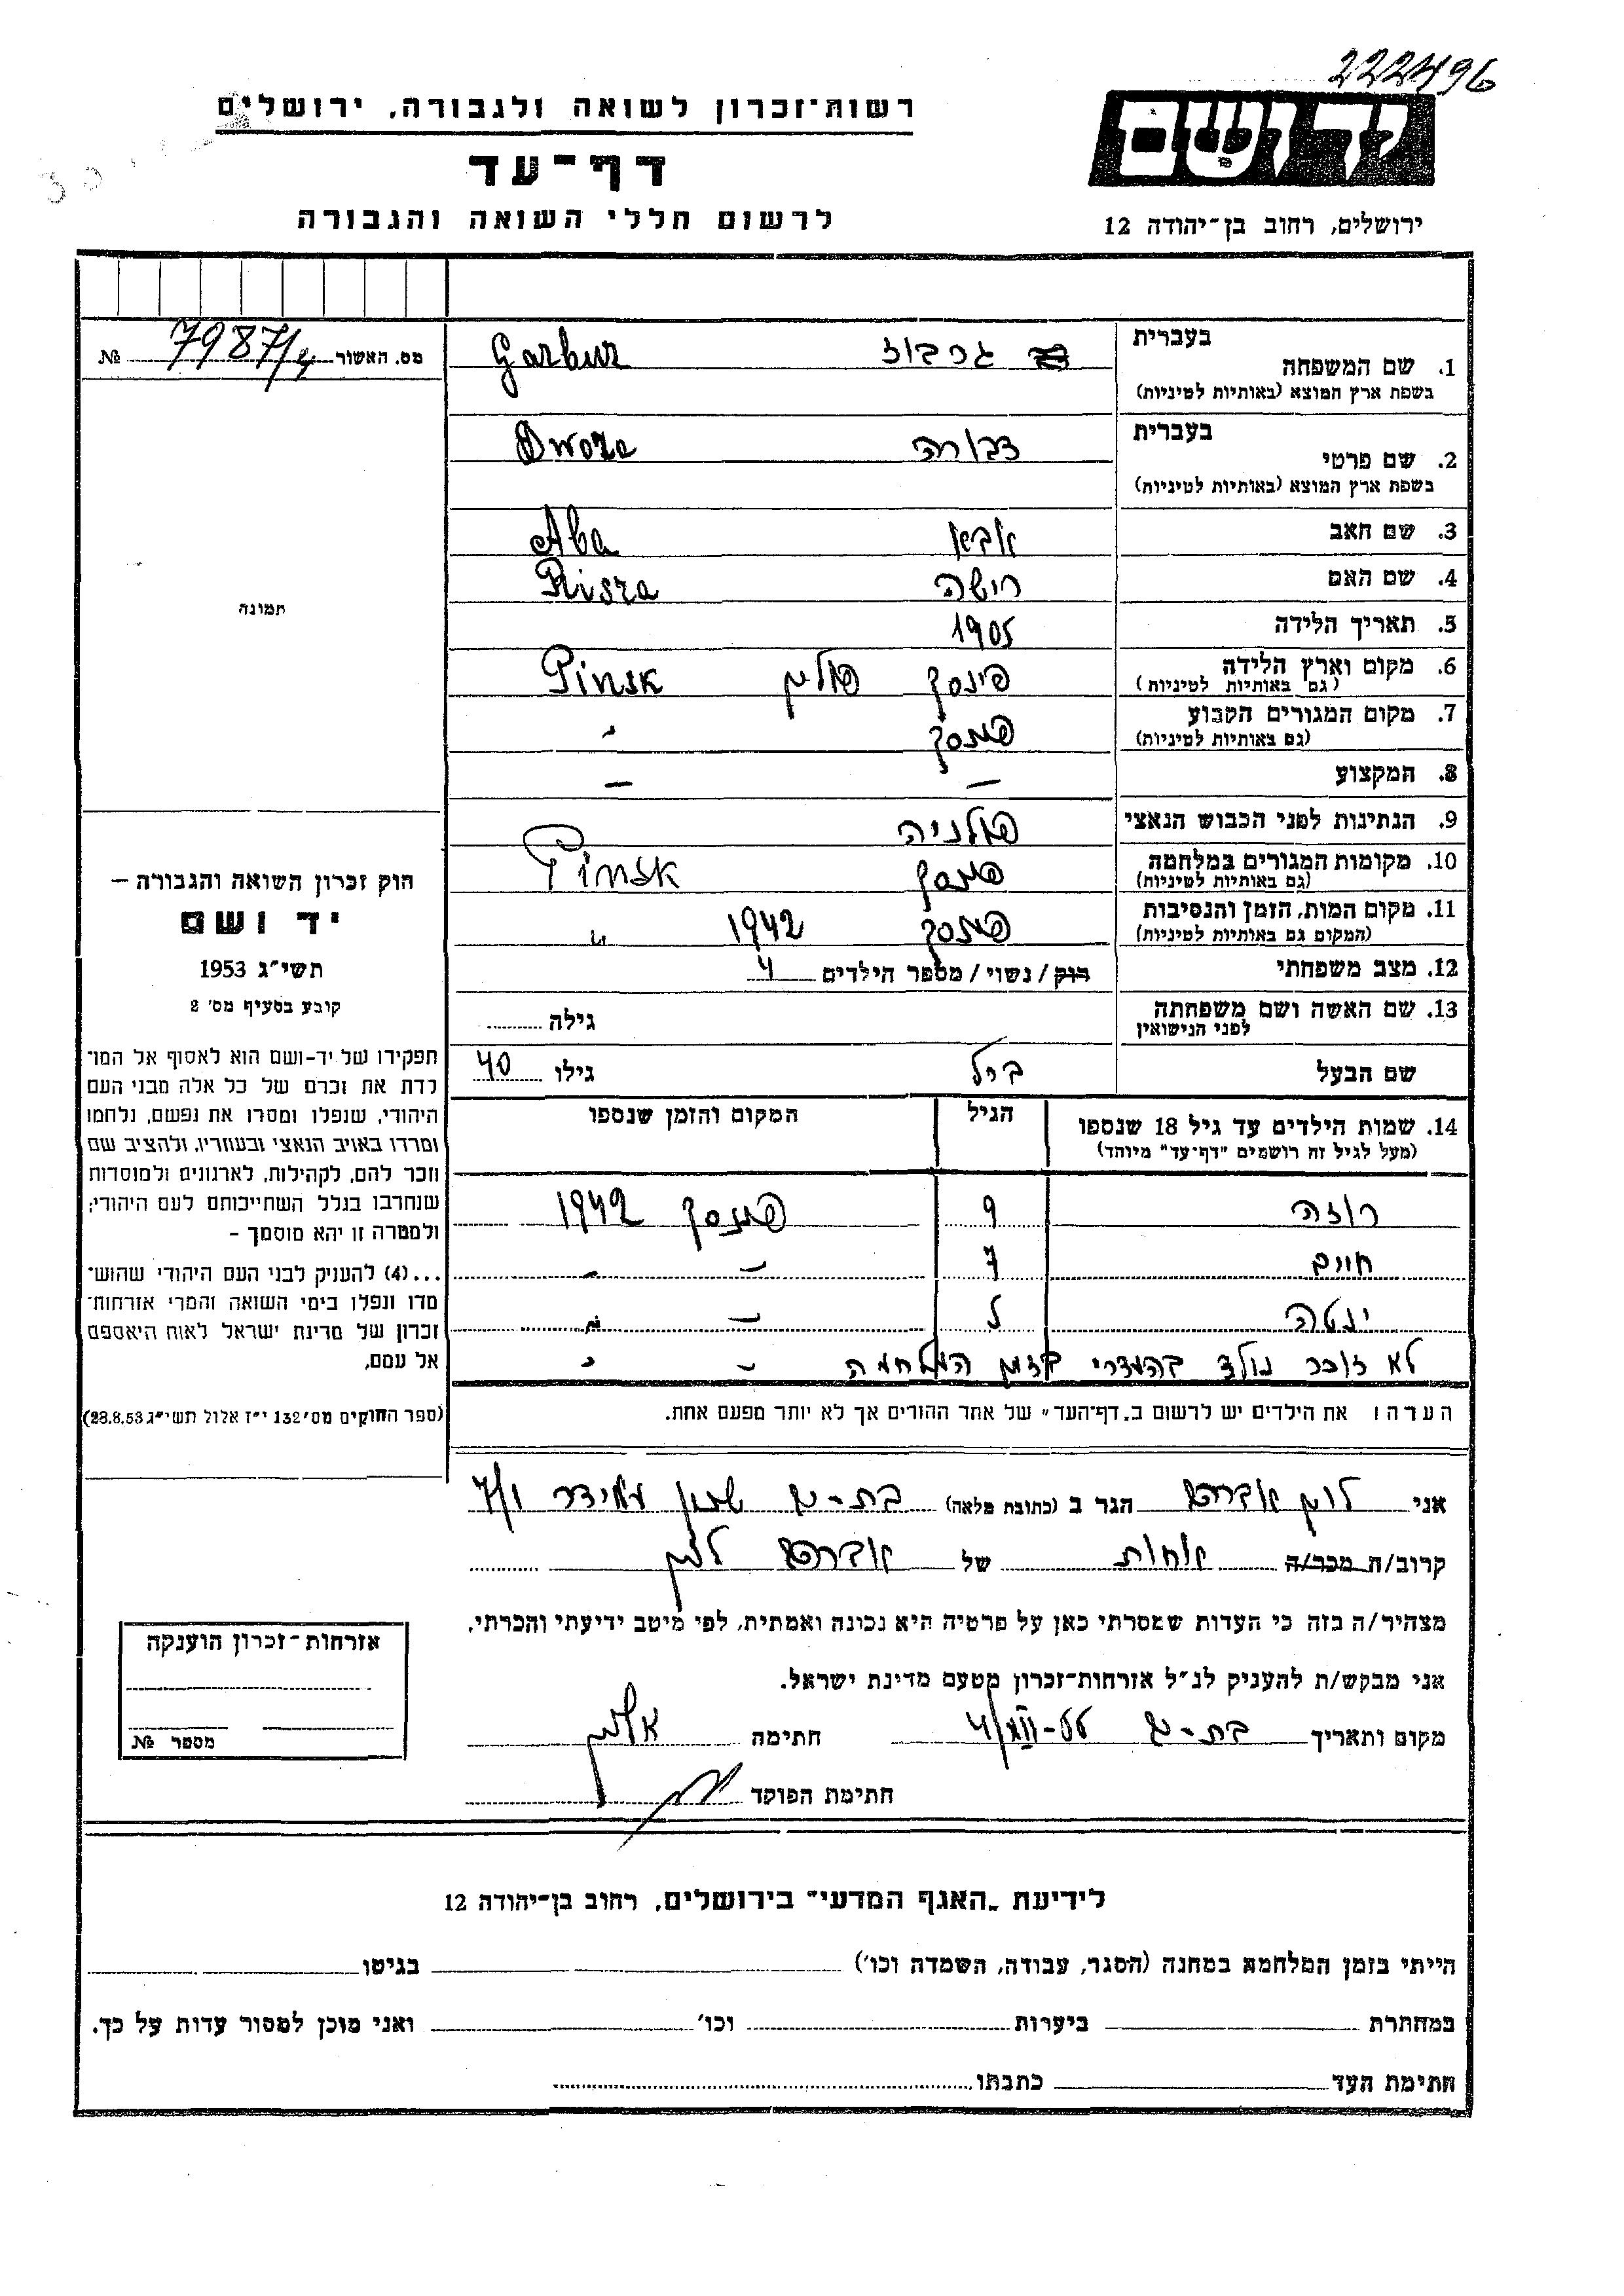 222496
רשות־זכרון לשואה ולגבורה, ירושלים
יד ושם
דף־עד
לרשום חללי השואה והגבורה
ירושלים, רחוב בן־יהודה 12
מס. האשור 7987/4 №
תמונה
חוק זכרון השואה והגבורה –
יד ושם
תשי״ג 1953
קובע בסעיף מס׳ 2
תפקידו של יד-ושם הוא לאסוף אל המו־
לדת את זכרם של כל אלה מבני העם
היהודי, שנפלו ומסרו את נפשם, נלחמו
ומרדו באויב הנאצי ובעוזריו, ולהציב שם
וזכר להם, לקהילות, לארגונים ולמוסדות
שנחרבו בגלל השתייכותם לעם היהודי;
ולמטרה זו יהא מוסמך –
...(4) להעניק לבני העם היהודי שהוש־
מדו ונפלו בימי השואה והמרי אזרחות־
זכרון של מדינת ישראל לאות היאספם
אל עמם.
(ספר החוקים מס׳ 132 י״ז אלול תשי״ג 28.8.53)
בעברית
1. שם המשפחה גרבוז Garbuz
בשפת ארץ המוצא (באותיות לטיניות)
בעברית
2. שם פרטי דבורה Dwora
בשפת ארץ המוצא (באותיות לטיניות)
3. שם האב אבא Aba
4. שם האם רישה
5. תאריך הלידה 1905
6. מקום וארץ הלידה פינסק פולין Pinsk
(גם באותיות לטיניות)
7. מקום המגורים הקבוע פינסק "
(גם באותיות לטיניות)
8. המקצוע – –
9. הנתינות לפני הכבוש הנאצי פולניה
10. מקומות המגורים במלחמה פינסק Pinsk
(גם באותיות לטיניות)
11. מקום המות, הזמן והנסיבות פינסק 1942 "
(המקום גם באותיות לטיניות)
12. מצב משפחתי רוק / נשוי / מספר הילדים 4
13. שם האשה ושם משפחתה גילה
לפני הנישואין
שם הבעל ברל גילו 40
14. שמות הילדים עד גיל 18 שנספו הגיל המקום והזמן שנספו
(מעל לגיל זה רושמים "דף־עד" מיוחד)
רוזה 9 פינסק 1942
חיים 7 – –
ינטה – "
לא זוכר נולד בהעדרי בזמן המלחמה – "
הערה: את הילדים יש לרשום ב„דף־העד״ של אחד ההורים אך לא יותר מפעם אחת.
אני לוין אברהם הגר ב (כתובת מלאה) בת-ים שכון
קרוב/ה מכר/ה אחות של אברהם לוין
מצהיר/ה בזה כי העדות שמסרתי כאן על פרטיה היא נכונה ואמתית, לפי מיטב ידיעתי והכרתי.
אני מבקש/ת להעניק לנ״ל אזרחות־זכרון מטעם מדינת ישראל.
מקום ותאריך בת-ים חתימה
חתימת הפוקד
אזרחות־זכרון הוענקה
מספר №
לידיעת „האגף המדעי״ בירושלים, רחוב בן־יהודה 12
הייתי בזמן המלחמה במחנה (הסגר, עבודה, השמדה וכו׳) בגיטו
במחתרת ביערות וכו׳ ואני מוכן למסור עדות על כך.
חתימת העד כתבתו